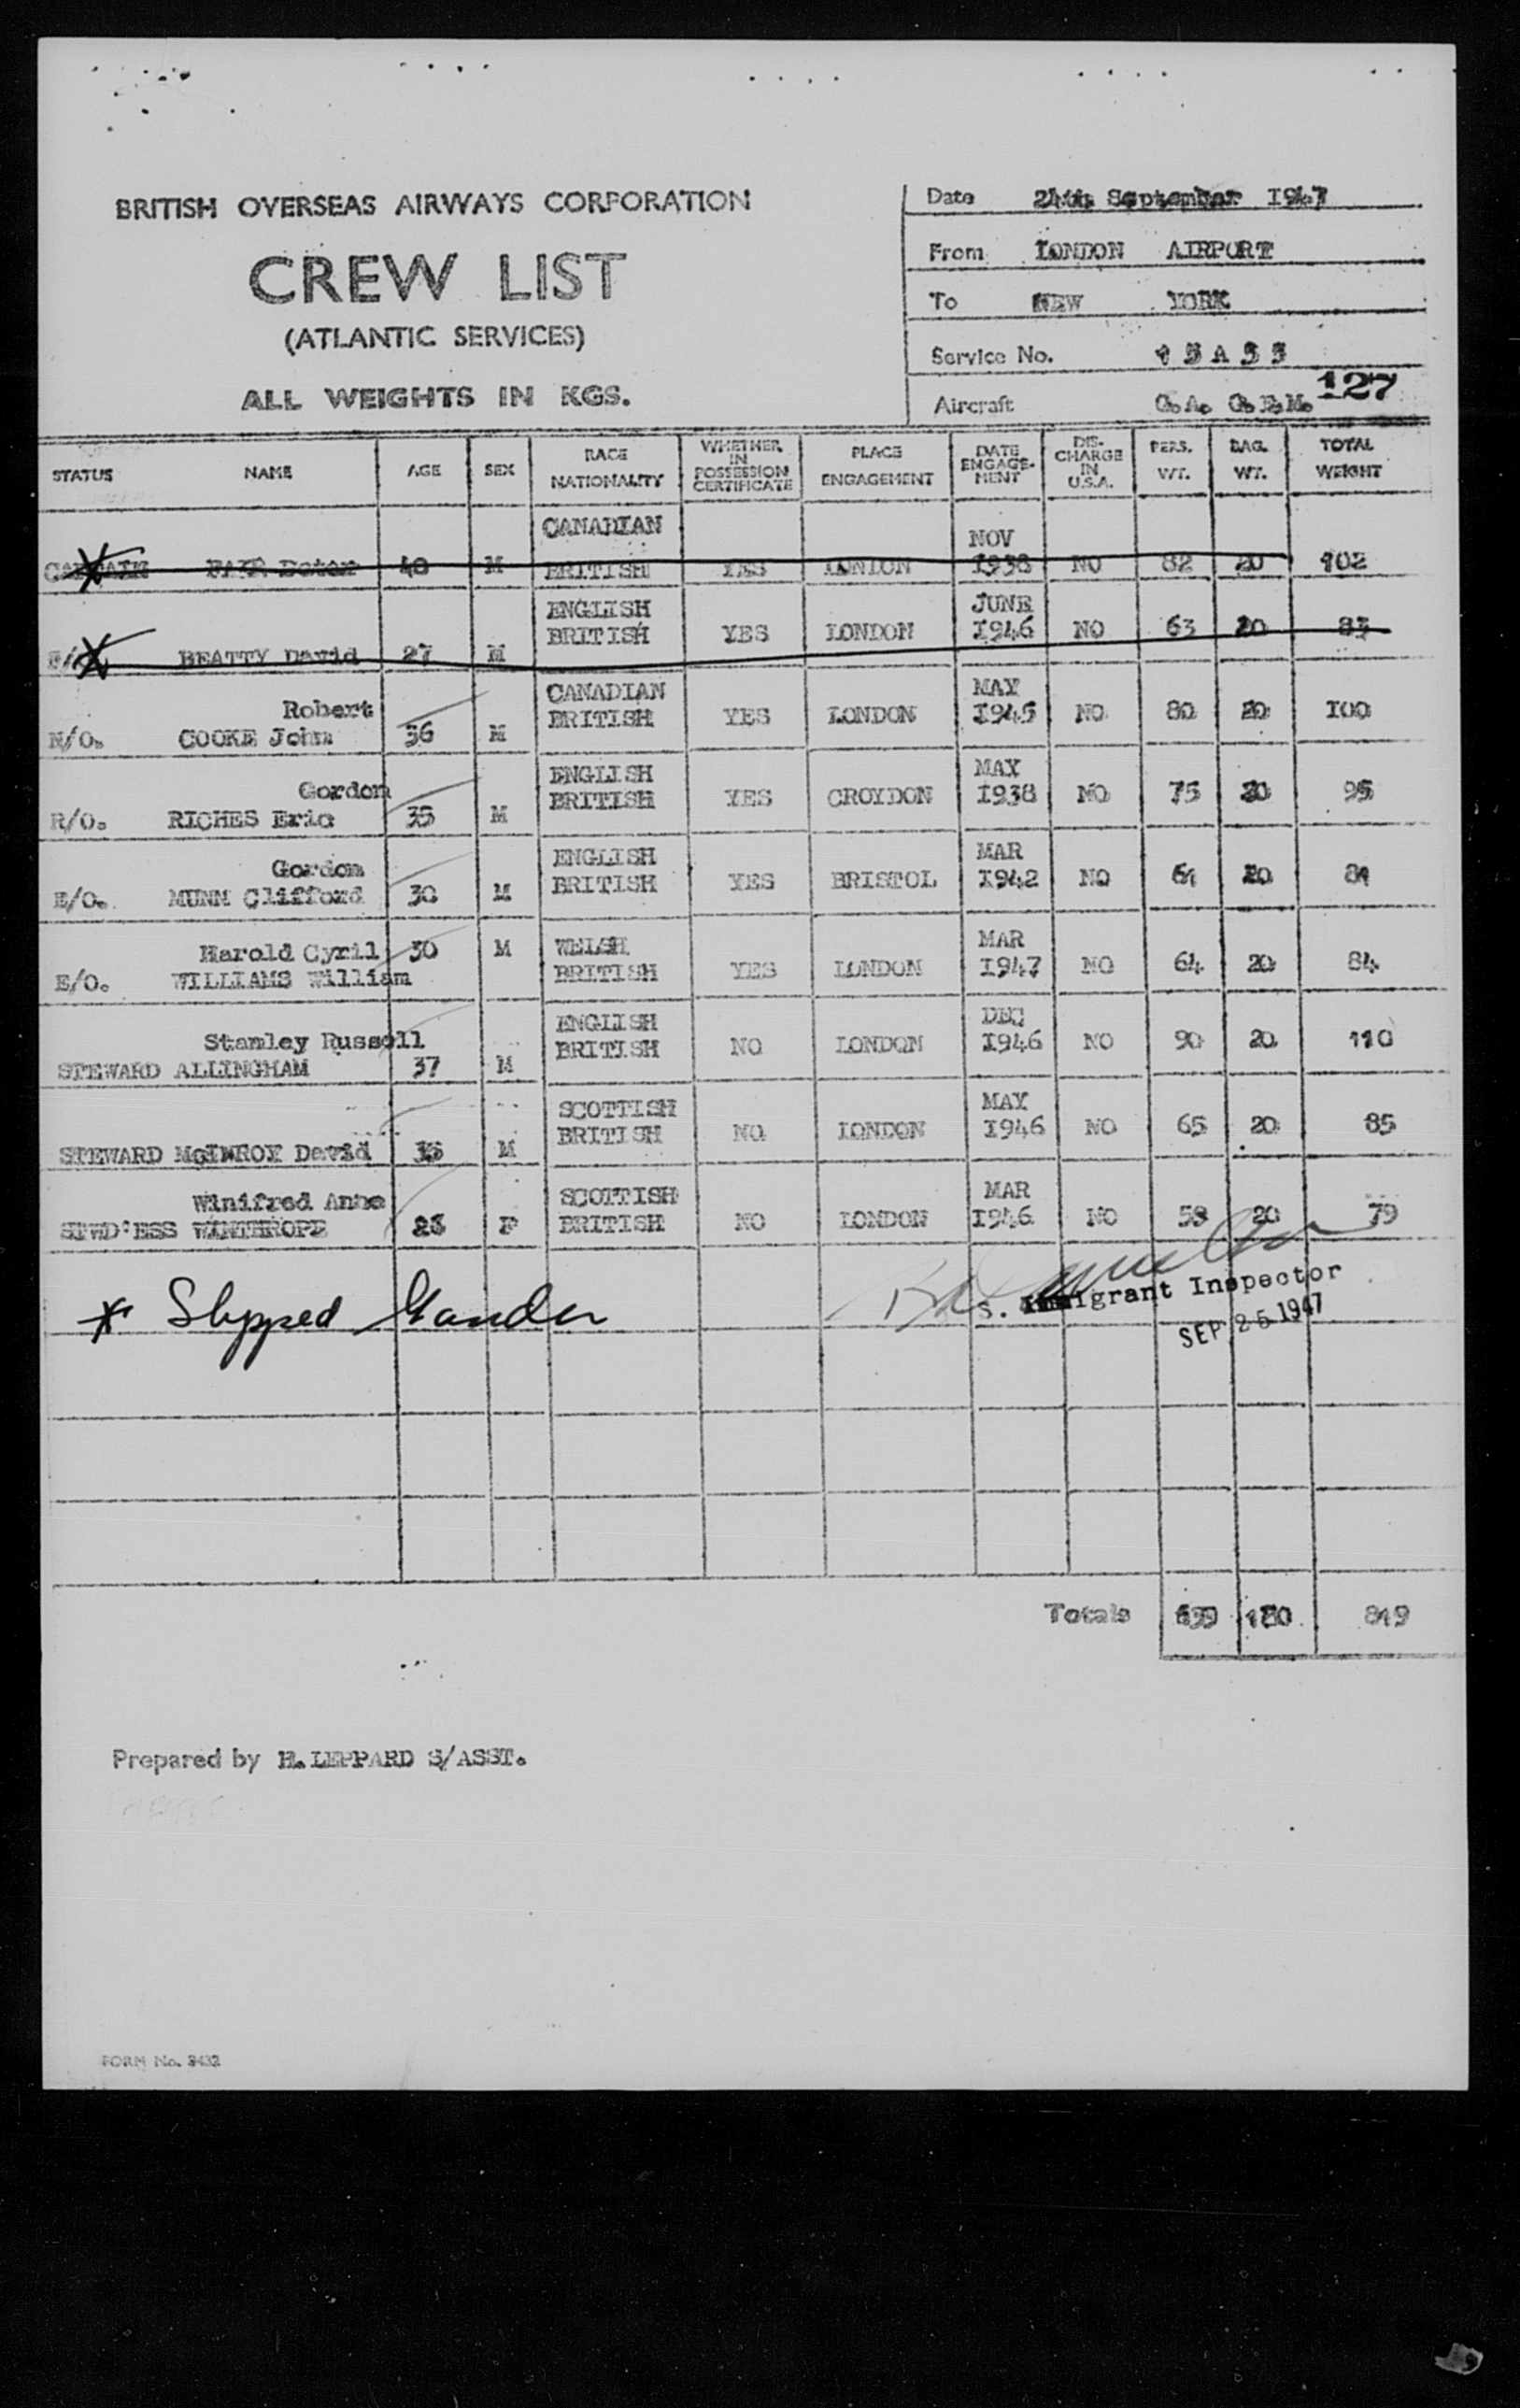 BRITISH OVERSEAS AIRWAYS CORPORATION
CREW LIST
(ATLANTIC SERVICES)
ALL WEIGHTS IN KGS.
Date 24th September 1947
From LONDON AIRPORT
To NEW YORK
Service No.
Aircraft 127
STATUS NAME AGE SEX RACE NATIONALITY WHETHER IN POSSESSION CERTIFICATE PLACE ENGAGEMENT DATE ENGAGE-MENT DIS-CHARGE IN U.S.A. PERS. WT. BAG. WT. TOTAL WEIGHT
CANADIAN NOV
CAPTAIN 40 M BRITISH YES LONDON 1938 NO 82 20 102
ENGLISH JUNE
BRITISH YES LONDON 1946 NO 63 20 83
BEATTY David 27 M
CANADIAN MAY
Robert BRITISH YES LONDON 1945 NO 80 20 100
N/O. COOKE John 36 M
ENGLISH MAY
Gordon BRITISH YES CROYDON 1938 NO 75 20 95
R/O. RICHES Eric 35 M
ENGLISH MAR
Gordon BRITISH YES BRISTOL 1942 NO 61 20 81
E/O. MUNN Clifford 30 M
Harold Cyril 30 M WELSH MAR
E/O. WILLIAMS William BRITISH YES LONDON 1947 NO 64 20 84
ENGLISH DEC
Stanley Russell BRITISH NO LONDON 1946 NO 90 20 110
STEWARD ALLINGHAM 37 M
SCOTTISH MAY
BRITISH NO LONDON 1946 NO 65 20 85
STEWARD McINROY David M
Winifred Anne SCOTTISH MAR
STWD'ESS WINTHROPE F BRITISH NO LONDON 1946 NO 20 79
* Slipped Gander
S. Immigrant Inspector
SEP 25 1947
Totals 639 180 819
Prepared by H. LEPPARD S/ASST.
FORM No. 3432